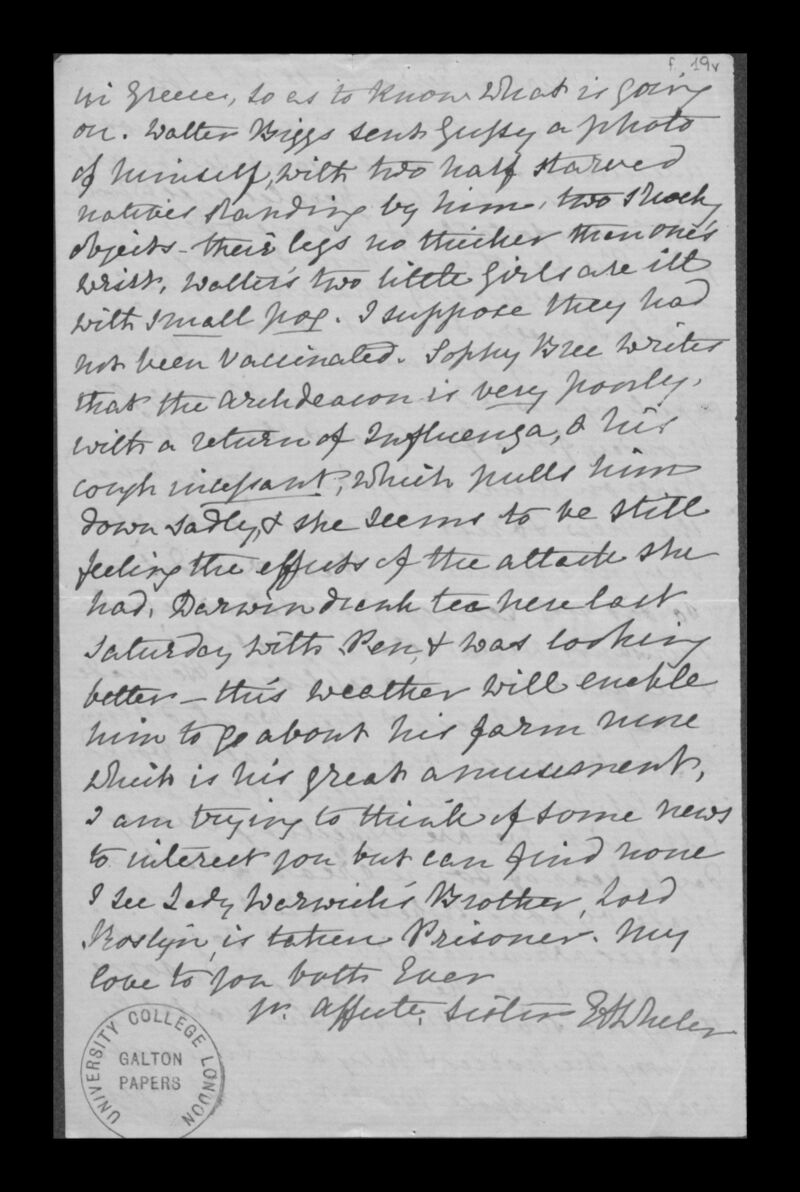 f. 19v
in Greece, so as to know what is going
on. Walter Biggs sent Gussy a photo
of himself, with two half starved
natives standing by him, two shocky
objects - their legs no thicker than one's
wrist. Walter's two little girls are ill
with small pox. I suppose they had
not been vaccinated. Sophy Bree writes
that the Archdeacon is very poorly,
with a return of Influenza, & his
cough incessant, which pulls him
down sadly, & she seems to be still
feeling the effects of the attack she
had. Darwin drank tea here last
Saturday with Pen, & was looking
better - this weather will enable
him to go about his farm more
which is his great amusement,
I am trying to think of some news
to interest you but can find none
I see Lady Warwick's Brother, Lord
Rosslyn, is taken Prisoner. My
love to you both Ever
yr. affecte. Sister E A Wheler
UNIVERSITY COLLEGE LONDON
GALTON
PAPERS